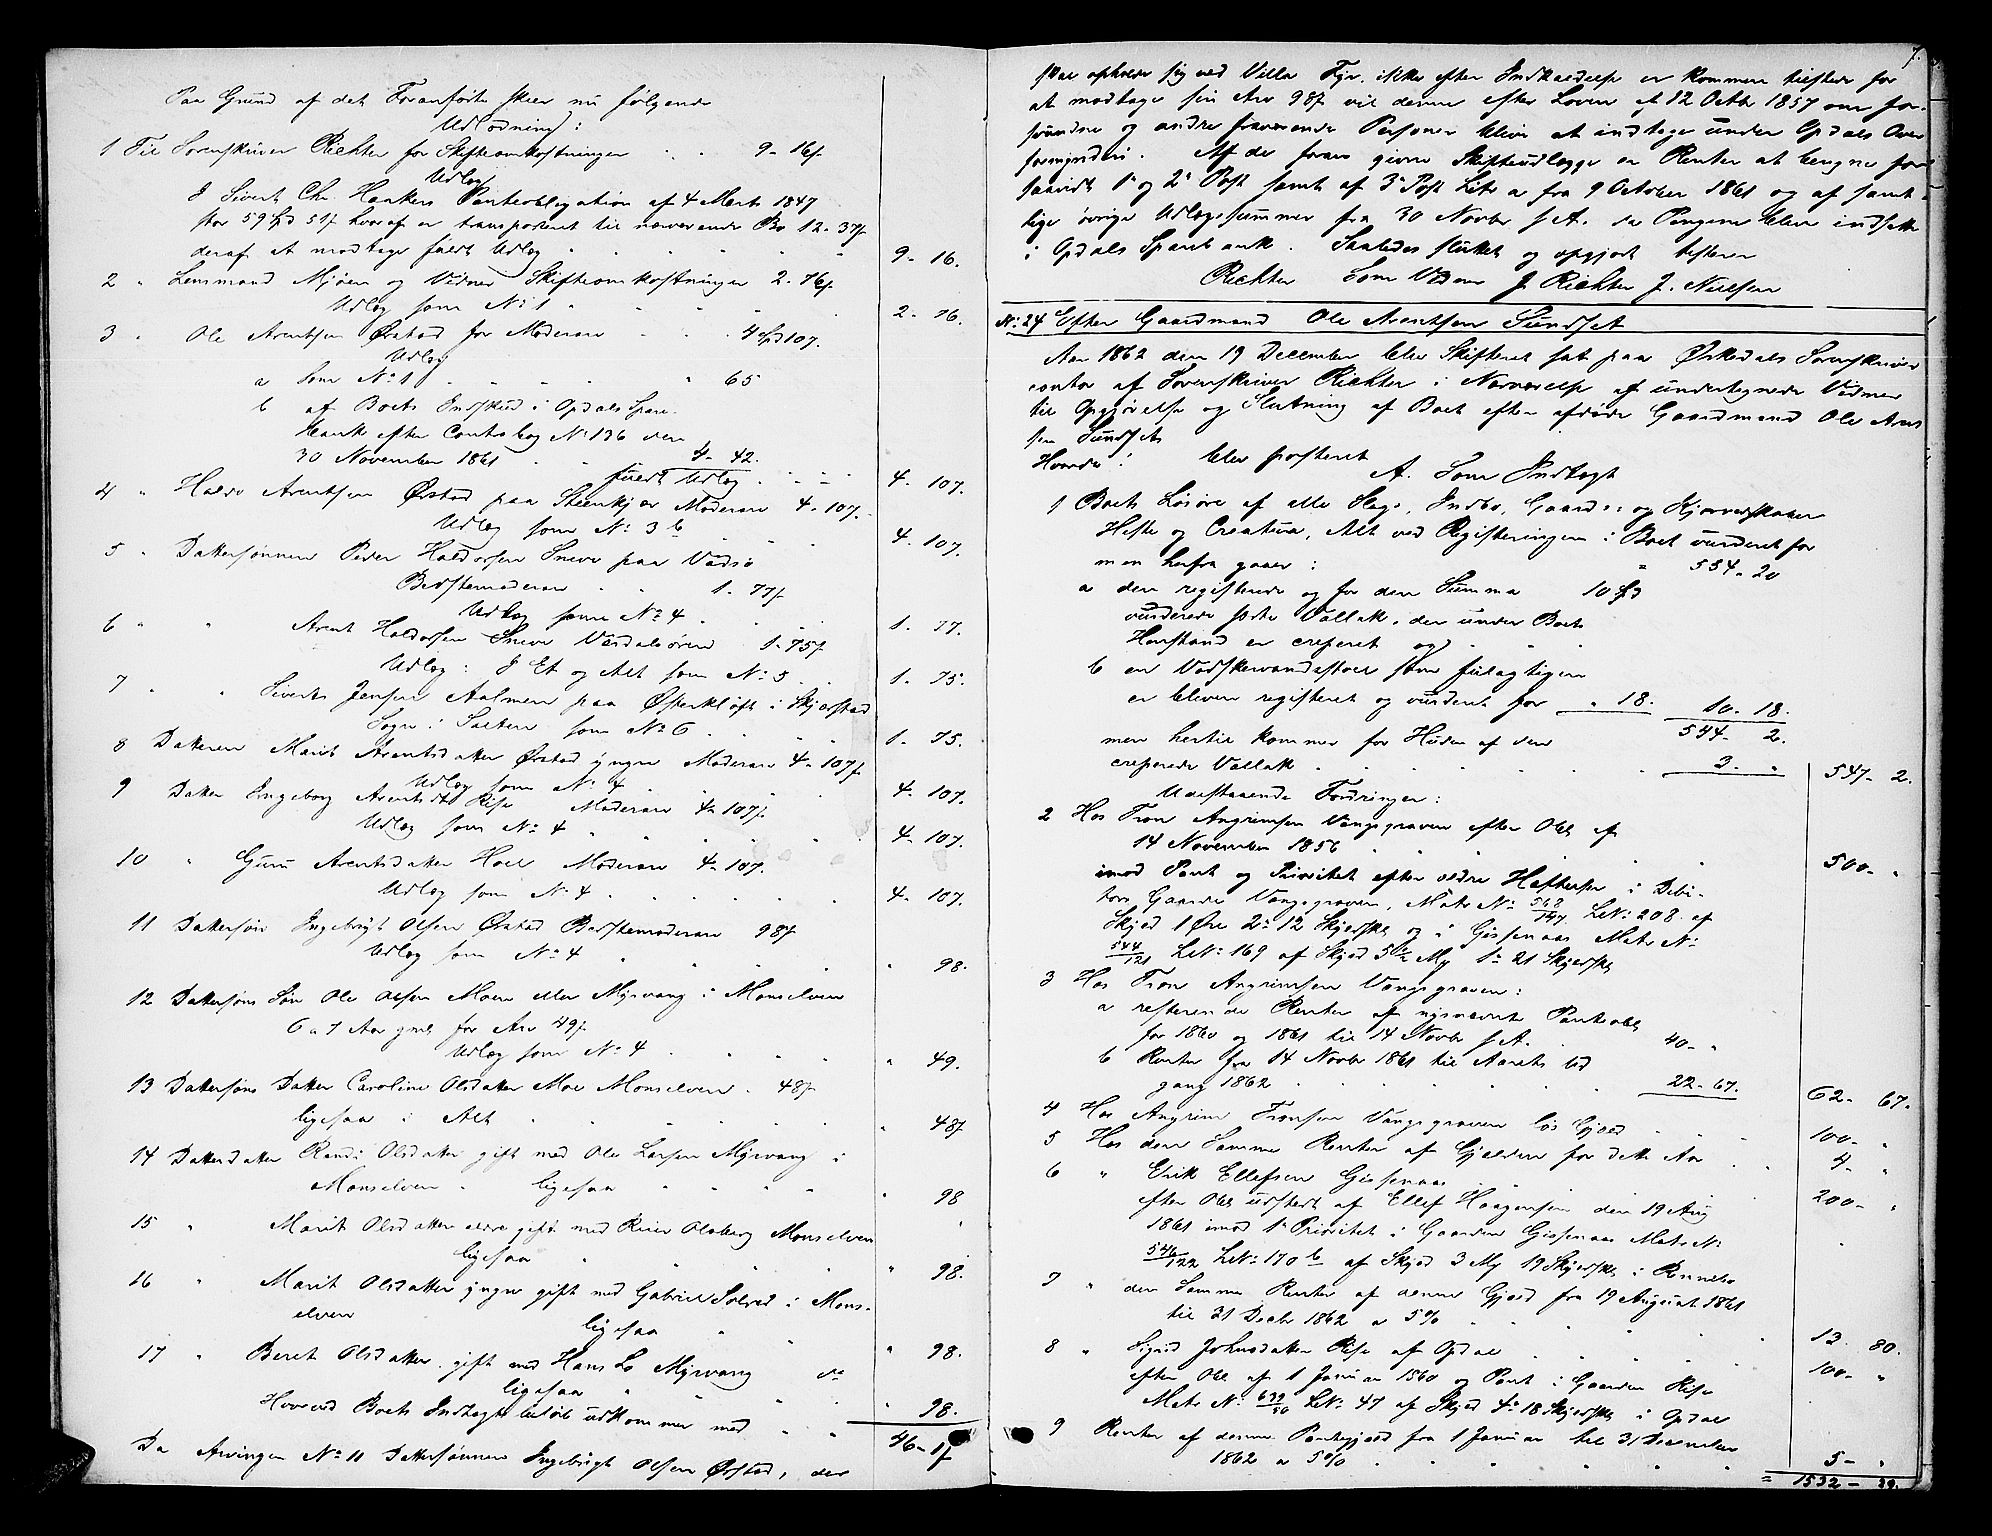 Paa Grund af det Foranførte skeer nu følgende
Udlodning:
1 Til Sorenskriver Richter for Skifteomkostninger . . 9-16ß
Udlæg
I Sivert Chr. Haakers Panteobligation af 4 Marts 1847
stor 59 Spd 51ß hvoraf er transporteret til nærværende Bo 12-37ß
deraf at modtage fuldt Udlæg . . . . 9-16.
2 " Lensmand Mjøen og Vidner Skifteomkostninger 2-76ß
Udlæg som No 1 . . . . 2-76.
3 " Ole Arentsen Ørstad for Moderarv . . . 4 Spd 107.
Udlæg
a Som No 1 . . . . " 65
b af Boets Indskud i Opdals Spare-
bank efter Contrabog No 136 den
30 November 1861 . . 4-42.
fuldt Udlæg . . . . 4-107.
4 " Haldo Arentsen Ørstad paa Steenkjær Moderarv 4-107.
Udlæg som No 3 b . . . 4-107.
5 " Dattersønnen Peder Haldorsen Sneve paa Vadsø
Bedstemoderarv . . 1-77ß
Udlæg som No 4 . . . 1-77.
6 " " Arent Haldorsen Sneve Værdalsøren 1-75ß
Udlæg: I Et og Alt som No 5 . . 1-75.
7 " " Siverts Jensen Aalmen paa Østerkløft i Skjerstad
Sogn i Salten som No 6 . . . 1-75.
8 Datteren Marit Arentsdatter Ørstad yngre Moderarv 4-107ß
Udlæg som No 4 . . . . 4-107.
9 Datter Ingeborg Arentsdtr Rise Moderarv 4-107ß
Udlæg som No 4 . . . . 4-107.
10 " Guru Arentsdatter Hoel Moderarv 4-107.
Udlæg som No 4 . . . . 4-107.
11 Dattersøn Ingebrigt Olsen Ørstad Bedstemoderarv 98ß
Udlæg som No 4 . . . " 98.
12 Dattersøns Søn Ole Olsen Moen eller Myrvang i Maaselven
6 a 7 Aar gml. for Arv 49ß
Udlæg som No 4 . . . . " 49.
13 Dattersøns Datter Caroline Olsdatter Moe Maaselven . 48ß
ligesaa i Alt . . . . . " 48ß
14 Datterdatter Randi Olsdatter gift med Ole Larsen Myrvang i
Maaselven " ligesaa " " " " 98
15 " Marit Olsdatter eldre gift med Peder Olsberg Maaselven
ligesaa " " " " 98.
16 " Marit Olsdatter yngre gift med Gabriel Solved i Maas-
elven ligesaa " " " 98.
17 " Beret Olsdatter gift med Hans Lo Myrvang do
ligesaa " " " 98.
Hvorved Boets Indtægtsbeløb udkommer med " " 46-17
Da Arvingen No 11 Dattersønnen Ingebrigt Olsen Ørstad, der
7.
skal opholde sig ved Villa Fyr, ikke efter Indkaldelse er kommen tilstede for
at modtage sin Arv 98ß vil denne efter Loven af 12 Octbr 1857 om for-
svundne og andre fraværende Personer blive at indtage under Opdals Over
formynderi. Af de foran givne Skifteudlægge er Renter at beregne for
saavidt 1ste og 2den Post samt af 3die Post Litr a fra 9 October 1861 og af samt-
lige øvrige Udlægssummer fra 30 Novbr s. A. da Pengene bleve indsatte
i Opdals Sparebank. Saaledes sluttet og opgjort testerer
Richter Som Vidner J Richter J. Nielsen
No 24 Efter Gaardmand Ole Arentsen Sundset
Aar 1862 den 19 December blev Skifteret sat paa Ørkedals Sorenskriver
contor af Sorenskriver Richter i Nærværelse af undertegnede Vidner
til Opgjørelse og Slutning af Boet efter afdøde Gaardmand Ole Arnt
sen Sundset
Hvorda: blev posteret
A. Som Indtægt
1 Boets Løsøre af alle Slags, Indbo, Gaards- og Kjøreredskaber
Heste og Creatur, Alt ved Registreringen i Boet vurderet for " 554-20
men herfra gaaer:
a den registrerede og for den Summa 10 Spd
vurderede sorte Vallak, der under Boets
Henstand er creperet og . . .
b en Vadskevandsstoel som feilagtigen
er bleven registreret og vurderet for " 18. 10-18.
544-2.
men hertil kommer for Huden af den
creperede Vallak . . . . . 3-" 547-2.
Udestaaende Fordringer:
2 Hos Tron Angrimsen Vangsgraven efter Obl. af
14 November 1856 . . . . 500-"
imod Pant og Prioritet efter eldre Heftelser i Debi-
tors Gaarde Vangsgraven, Matr No 568/147 LNo 208. af
Skyld 1 Øre 2 - 12 Skjerdsk og i Gissenaas Matr No
544/121 LNo 169 af Skyld 5 1/2 My 1 - 21 Skjerdsk
3 Hos Tron Angrimsen Vangsgraven:
a resterende Renter af nysnævnte Panteobl.
for 1860 og 1861 til 14 Novbr s. A. . . 40-"
b Renter fra 14 Novbr 1861 til Aarets Ud
gang 1862 . . . . 22-67. 62-67.
4 Hos Angrim Tronsen Vangsgraven løs Gjæld . . . 100-"
5 Hos den Samme Renter af Gjælden for dette Aar . . . 4-"
6 " Erik Ellefsen Gissenaas . . . . 200-"
efter Obl udstedt af Ellef Haagensen den 19 Aug
1861 imod 1ste Prioritet i Gaarden Gissenaas Matr No
546/122 LNo 170 b af Skyld 3 My 19 Skjerdsk i Rennebo
7 " den Samme Renter af denne Gjæld fra 19 August 1861
til 31 Decbr 1862 a 5% . . . . 13-80.
8 " Sigrid Johnsdatter Rise af Opdal . . . . 100-"
efter Obl. af 1 Januar 1860 og Pant i Gaarden Rise
Matr No 632/50 LNo 47 af Skyld 4 - 18 Skjerdsk i Opdal
9 Renter af denne Pantegjæld fra 1 Januar til 31 December
1862 a 5% . . . . . 5-"
= 1532-29.